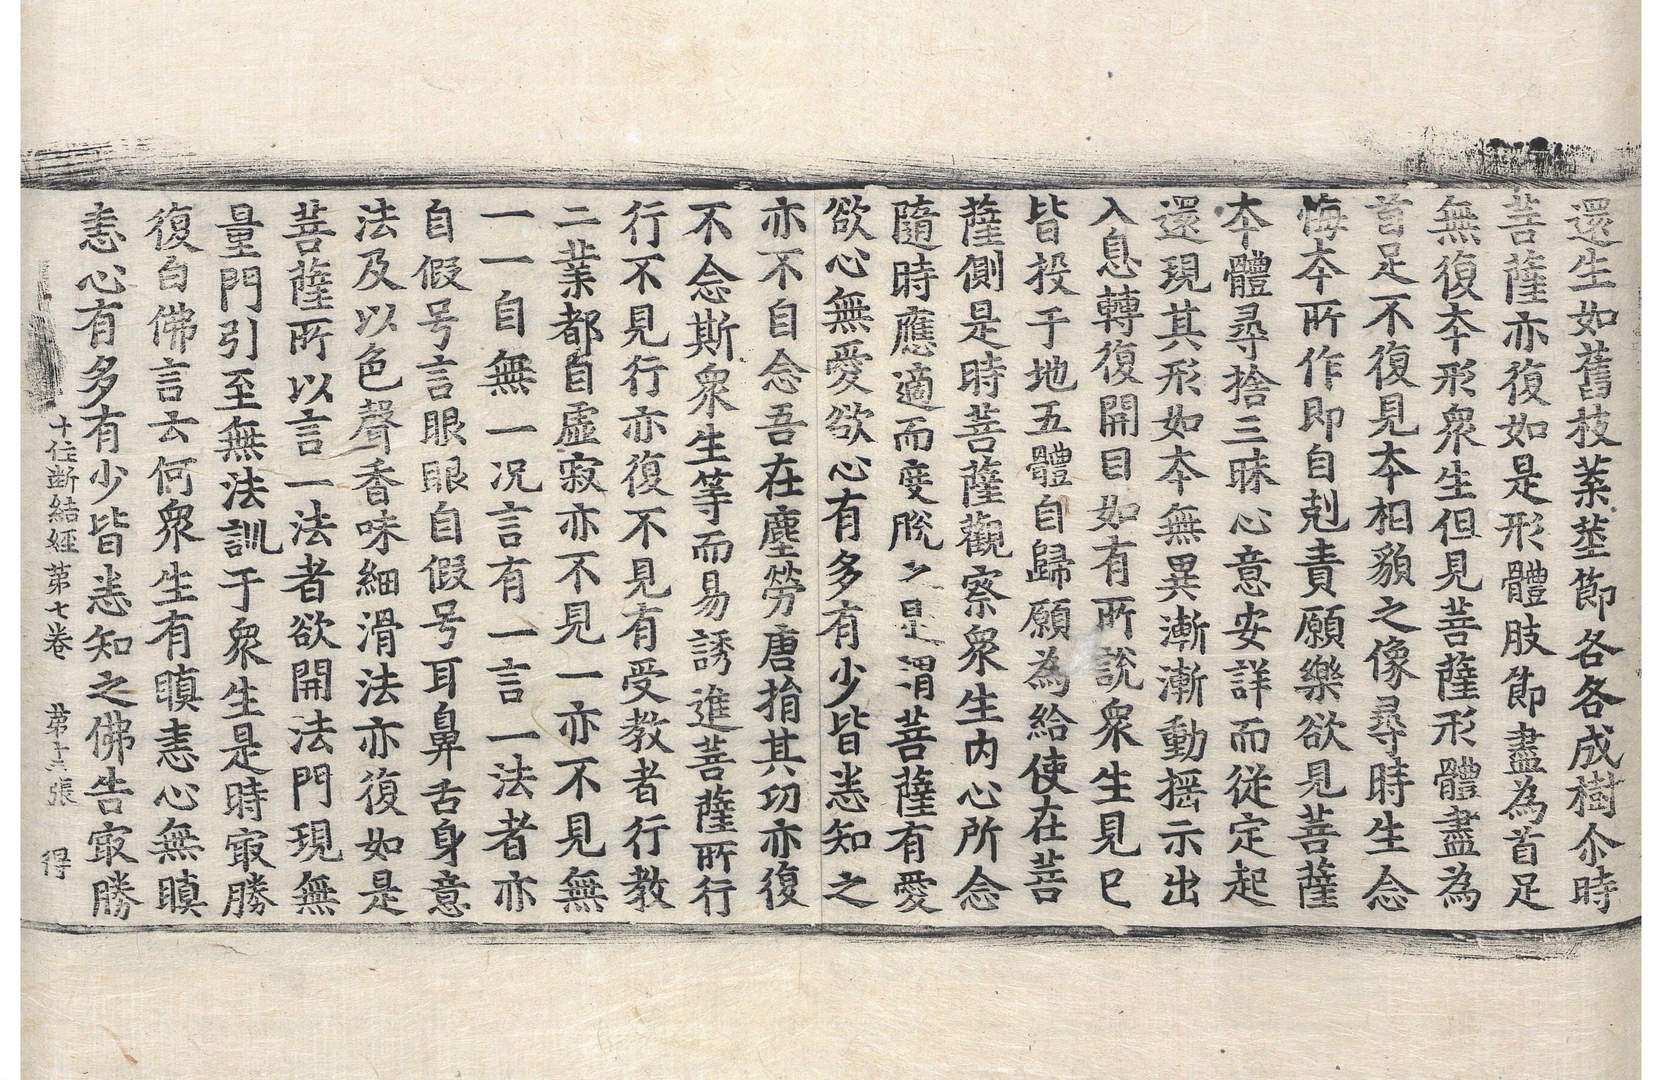 還生如舊枝葉莖節各各成樹尒時
菩薩亦復如是形體肢節盡為首足
無復夲形衆生但見菩薩形體盡為
首足不復見夲相貌之像尋時生念
悔夲所作即自剋責願樂欲見菩薩
夲體尋捨三昧心意安詳而從定起
還現其形如夲無異漸漸動揺示出
入息轉復開目如有所說衆生見已
皆投于地五體自歸願為給使在菩
薩側是時菩薩觀察衆生内心所念
隨時應適而度脫之是謂菩薩有愛
欲心無愛欲心有多有少皆悉知之
亦不自念吾在塵勞唐捐其功亦復
不念斯衆生等而易誘進菩薩所行
行不見行亦復不見有受教者行教
二業都自虛寂亦不見一亦不見無
一一自無一况言有一言一法者亦
自假号言眼眼自假号耳鼻舌身意
法及以色聲香味細滑法亦復如是
菩薩所以言一法者欲開法門現無
量門引至無法訓于衆生是時㝡勝
復白佛言云何衆生有瞋恚心無瞋
恚心有多有少皆悉知之佛告㝡勝
十住断結経第七卷 第十張 得